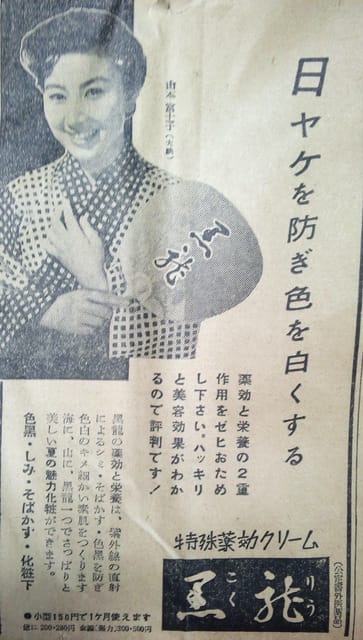 日ヤケを防ぎ色を白くする
山本富士子(大映)
黒龍
薬効と栄養の2重
作用をゼヒおため
し下さい。ハッキリ
と美容効果がわか
るので評判です!
黒龍の薬効と栄養は、紫外線の直射
によるシミ・そばかす・色黒を防ぎ
色白のキメ細かい素肌をつくります
海に、山に、黒龍一つでさっぱりと
美しい夏の魅力化粧ができます。
色黒・しみ・そばかす・化粧下
特殊薬効クリーム
黒龍
こくりう
●小型150円で1ケ月使えます